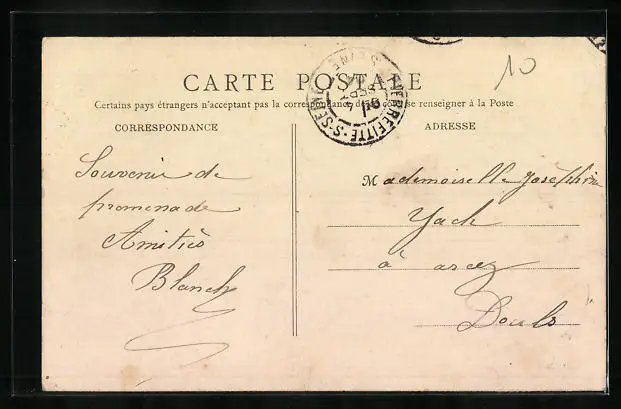 10
CARTE POSTALE
Certains pays étrangers n'acceptent pas la correspondance se renseigner à la Poste
CORRESPONDANCE
ADRESSE
PIERREFITTE-S-SEINE
Souvenir de
promenade
Amitiés
Blanch
Mademoiselle Joséphine
Yach
à arcey
Doubs